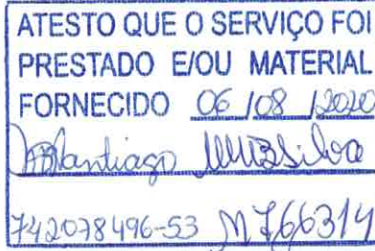 ATESTO QUE O SERVIÇO FOI
PRESTADO E/OU MATERIAL
FORNECIDO 06/08/2020
Santiago
742078496-53 M766314